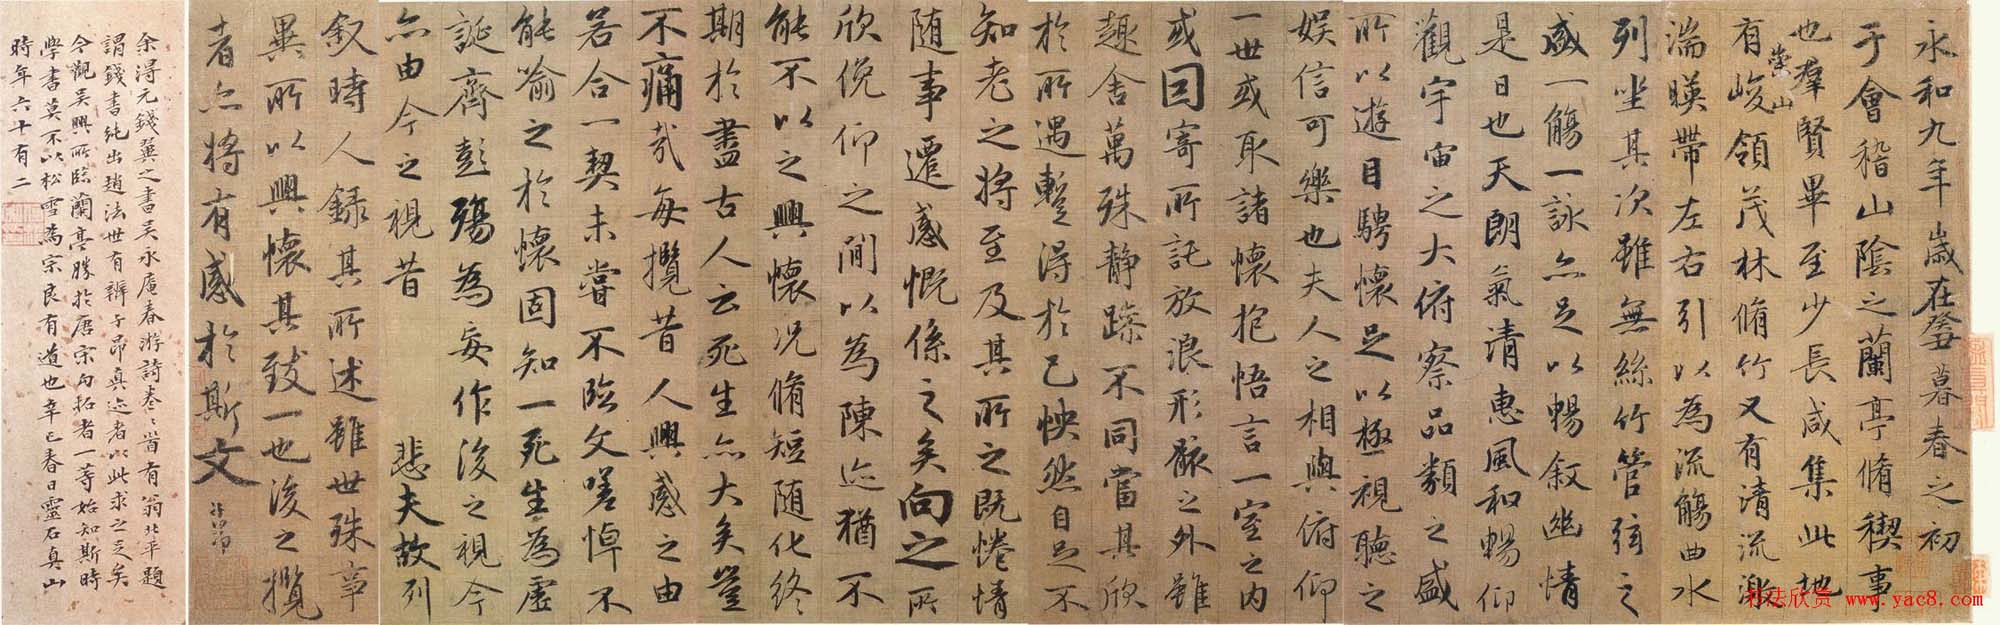 永和九年歲在癸丑暮春之初
于會稽山陰之蘭亭脩稧事
也羣賢畢至少長咸集此地
有崇山峻領茂林脩竹又有清流激
湍暎帶左右引以為流觴曲水
列坐其次雖無絲竹管弦之
盛一觴一詠亦足以暢叙幽情
是日也天朗氣清惠風和暢仰
觀宇宙之大俯察品類之盛
所以遊目騁懷足以極視聽之
娛信可樂也夫人之相與俯仰
一世或取諸懷抱悟言一室之內
或因寄所託放浪形骸之外雖
趣舍萬殊静躁不同當其欣
於所遇蹔得於己怏然自足不
知老之將至及其所之既惓情
随事遷感慨係之矣向之所
欣俛仰之間以為陳迹猶不
能不以之興懷況脩短随化終
期於盡古人云死生亦大矣豈
不痛哉每攬昔人興感之由
若合一契未嘗不臨文嗟悼不
能喻之於懷固知一死生為虛
誕齊彭殤為妄作後之視今
亦由今之視昔 悲夫故列
叙時人錄其所述雖世殊事
異所以興懷其致一也後之攬
者亦將有感於斯文
余得元錢翼之書吴永庵春游詩卷卷首有翁北平題
謂錢書純出趙法世有辨子昂真迹者以此求之足矣
今觀吴興所臨蘭亭勝於唐宋勾拓者一等始知斯時
學書莫不以松雪為宗良有道也辛巳春日靈石真山
時年六十有二
书法欣赏 www.yac8.com